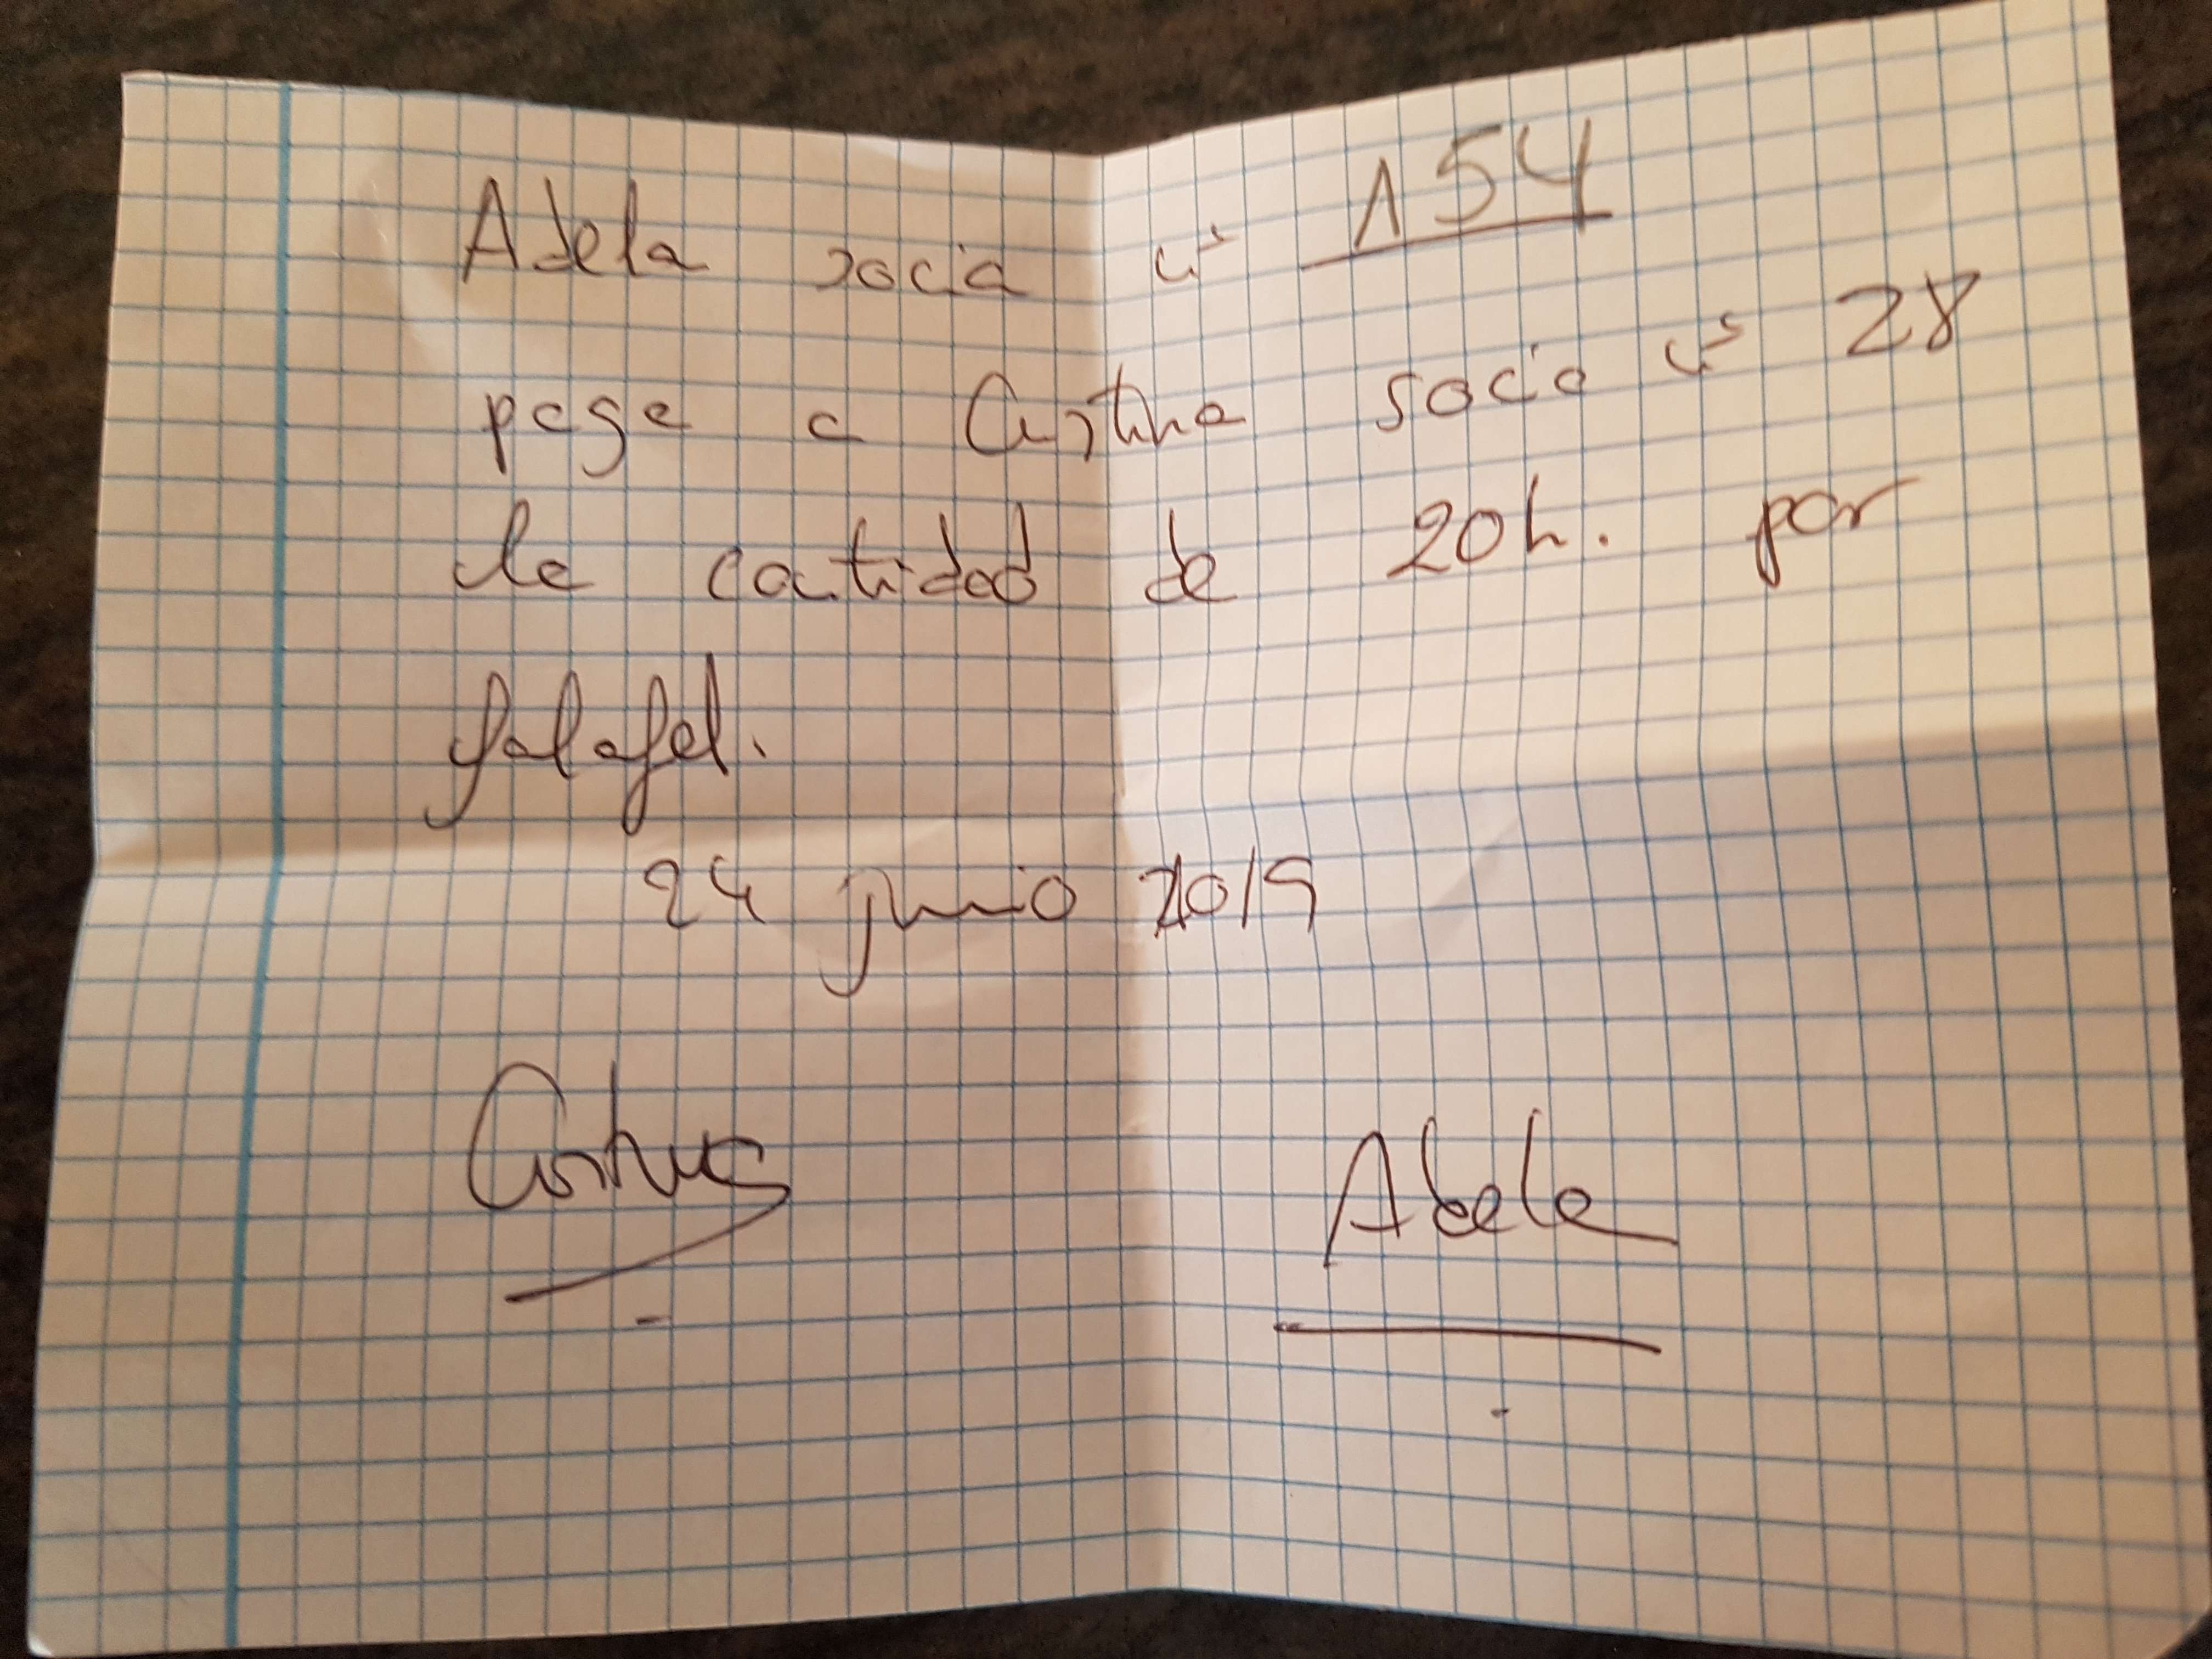 Adela socia nº 154
paga a Cristina socia nº 28
la cantidad de 20h. por
falafel.
24 junio 2019
Cristina
Adela